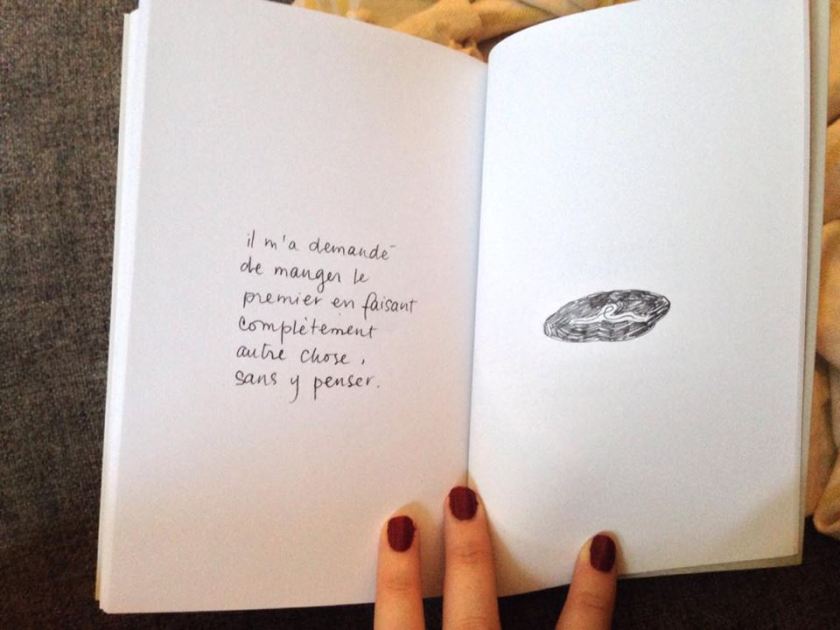 il m'a demandé
de manger le
premier en faisant
complètement
autre chose,
sans y penser.